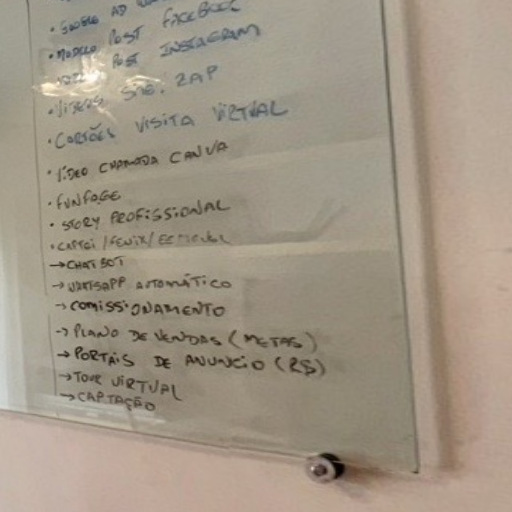 • GOOGLE AD
• MODELO POST FACEBOOK
POST INSTAGRAM
ZAP
• CARTÕES VISITA VIRTUAL
• VÍDEO CHAMADA CANVA
• FUNFAGE
• STORY PROFISSIONAL
• CAPTEI / FENIX /
→ CHATBOT
→ WHATSAPP AUTOMÁTICO
→ COMISSIONAMENTO
→ PLANO DE VENDAS (METAS)
→ PORTAIS DE ANUNCIO (R$)
→ TOUR VIRTUAL
→ CAPTAÇÃO